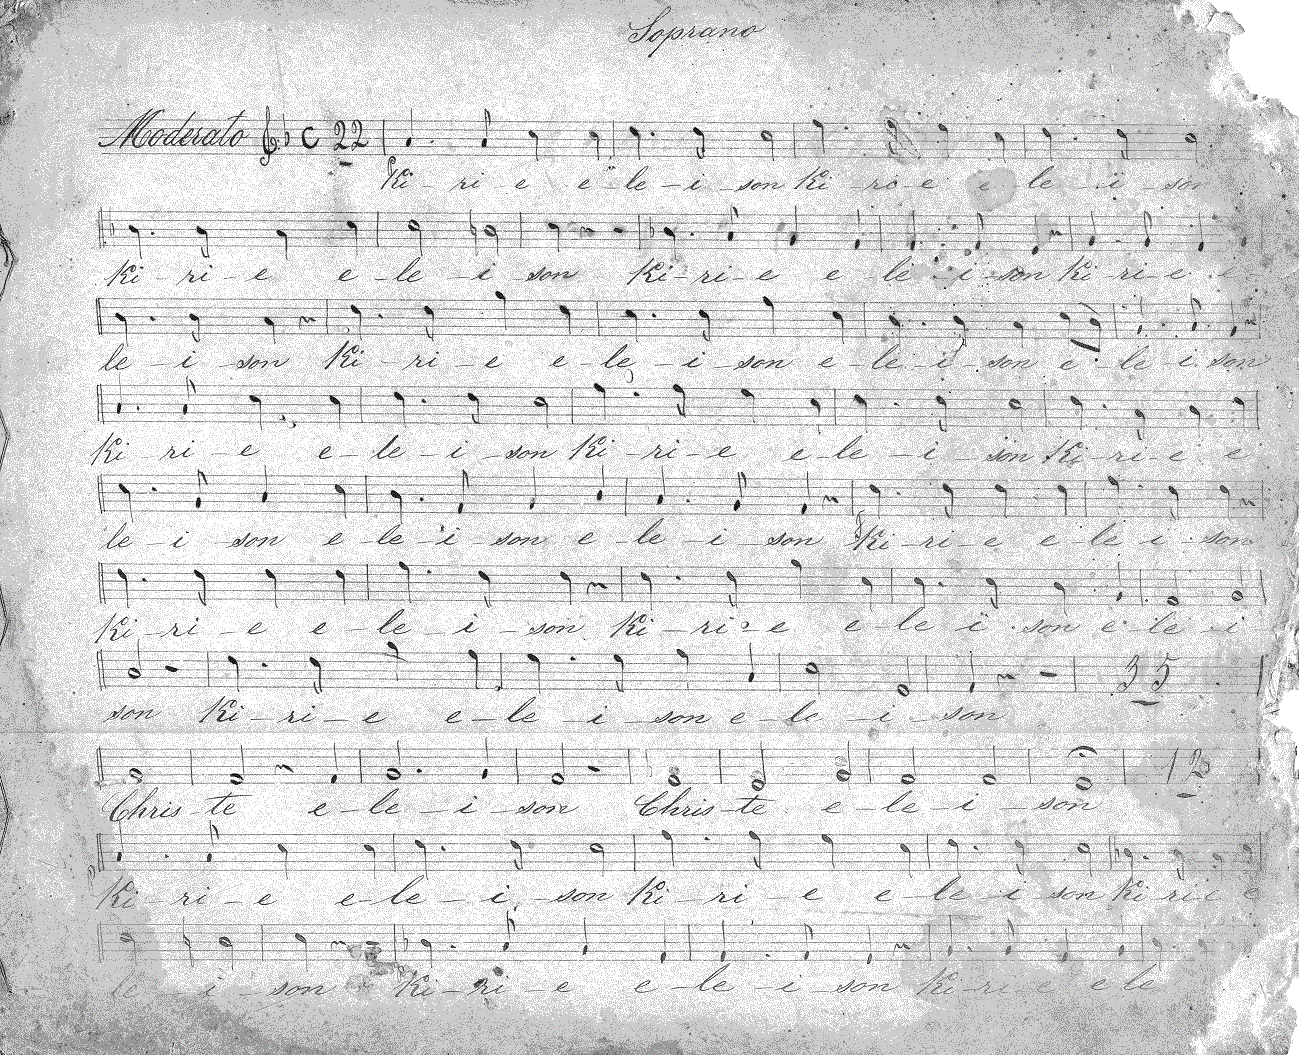 Soprano
Moderato C 22
Ki - ri e e - le - i - son Ki - ri e e - le - i - son
Ki - ri - e e - le - i - son Ki - ri - e e - le - i - son Ki - ri - e e
le - i - son Ki - ri - e e - le - i - son e - le - i - son e - le i son
Ki - ri - e e - le - i - son Ki - ri - e e - le - i - son Ki - ri - e e
le - i - son e - le - i - son e - le - i - son Ki - ri - e e - le i - son
Ki - ri - e e - le - i - son Ki - ri - e e - le i - son e - le - i
son Ki - ri - e e - le - i - son e - le - i - son 35
Chris - te e - le - i - son Chris - te e - le - i - son 12
Ki - ri - e e - le - i - son Ki - ri - e e - le - i - son Ki ri e e
le - i - son Ki - ri - e e - le - i - son Ki - ri - e e le